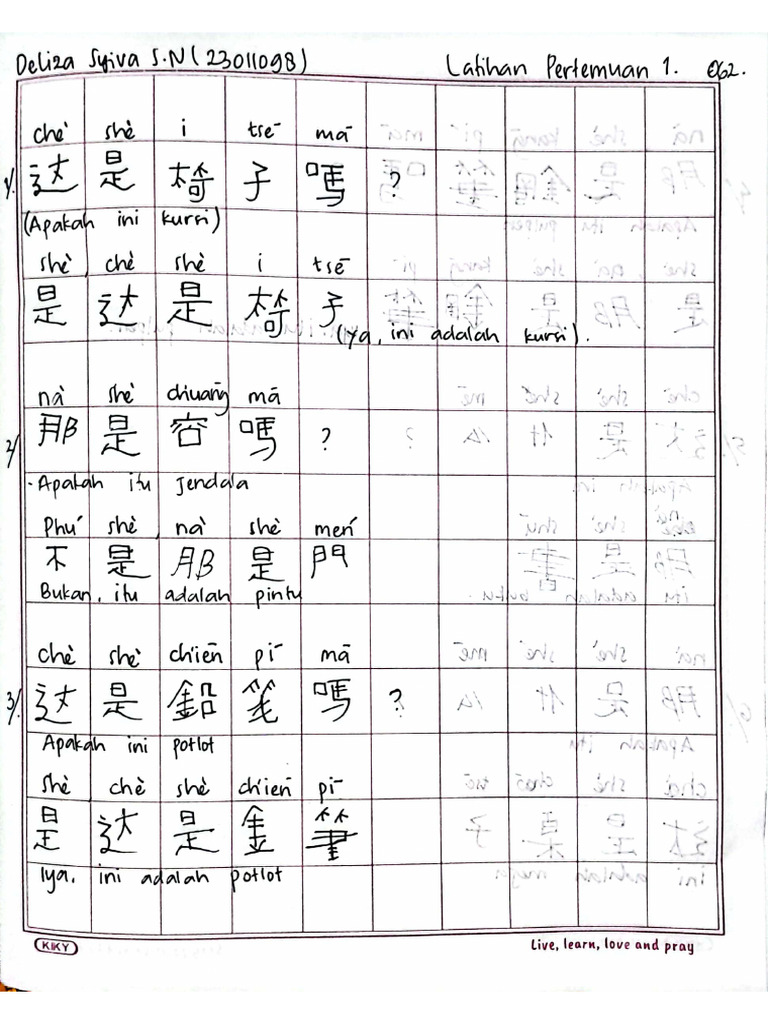 Deliza Syiva S.N (23011098) Latihan Pertemuan 1. 062.
chè shè i tsē mā
1/. 这 是 椅 子 嗎 ?
(Apakah ini kursi)
shè, chè shè i tsē
是 这 是 椅 子
(Iya, ini adalah kursi).
nà shè ch'uāng mā
2/ 那 是 容 嗎 ?
- Apakah itu jendala
Phú shè, nà shè mén
不 是 那 是 門
Bukan, itu adalah pintu
chè shè ch'iēn pī mā
3/. 这 是 鉛 笔 嗎 ?
Apakah ini potlot
shè, chè shè ch'iēn pī
是 这 是 金 筆
Iya, ini adalah potlot
KIKY Live, learn, love and pray